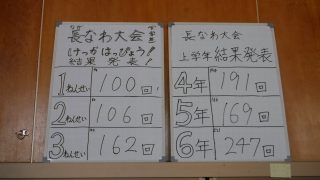 長なわ大会
けっかはっぴょう!!
結果発表!
1ねんせい 100回
2ねんせい 106回
3ねんせい 162回
長なわ大会
上学年 結果発表
4年 191回
5年 169回
6年 247回